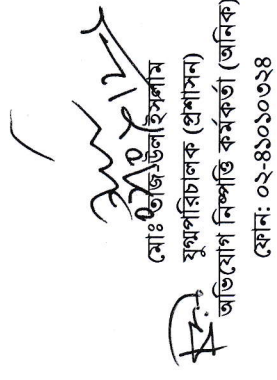 মোঃ তাজ-উল ইসলাম
যুগ্মপরিচালক (প্রশাসন)
অভিযোগ নিষ্পত্তি কর্মকর্তা (অনিক)
ফোন: ০২-৪১০১০৩২৪